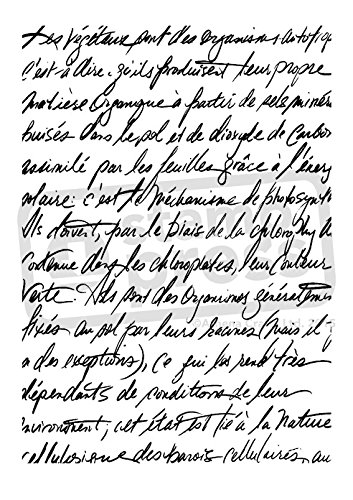 Les végétaux sont des organismes autotrop
c'est à dire qu'ils produisent leur propre
matière organique à partir de sels minér
puisés dans le sol et de dioxyde de carbon
assimilé par les feuilles grâce à l'énerg
solaire: c'est le mécanisme de photosynth
Ils doivent, par le biais de la chlorophy
contenue dans les chloroplastes, leur couleur
verte. Ils sont des organismes généralemen
fixés au sol par leurs racines (mais il y
a des exceptions), ce qui les rend très
dépendants de conditions de leur
environnement; cet état est lié à la nature
cellulosique des parois cellulaires, au